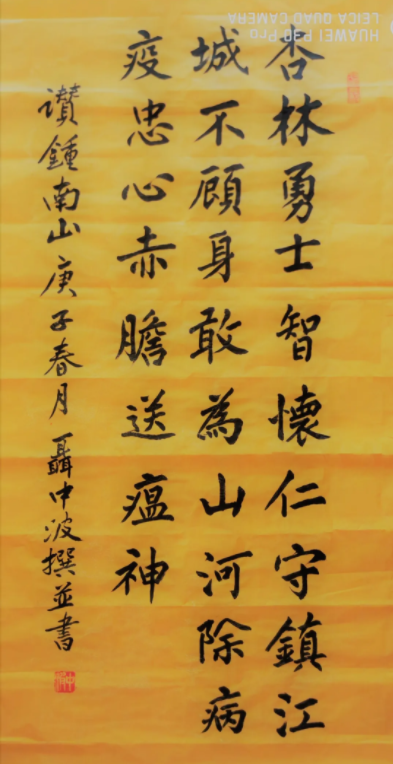 杏林勇士智懷仁守鎮江
城不顧身敢為山河除病
疫忠心赤膽送瘟神
讃鍾南山庚子春月聶中波撰並書
HUAWEI P30 Pro
LEICA QUAD CAMERA